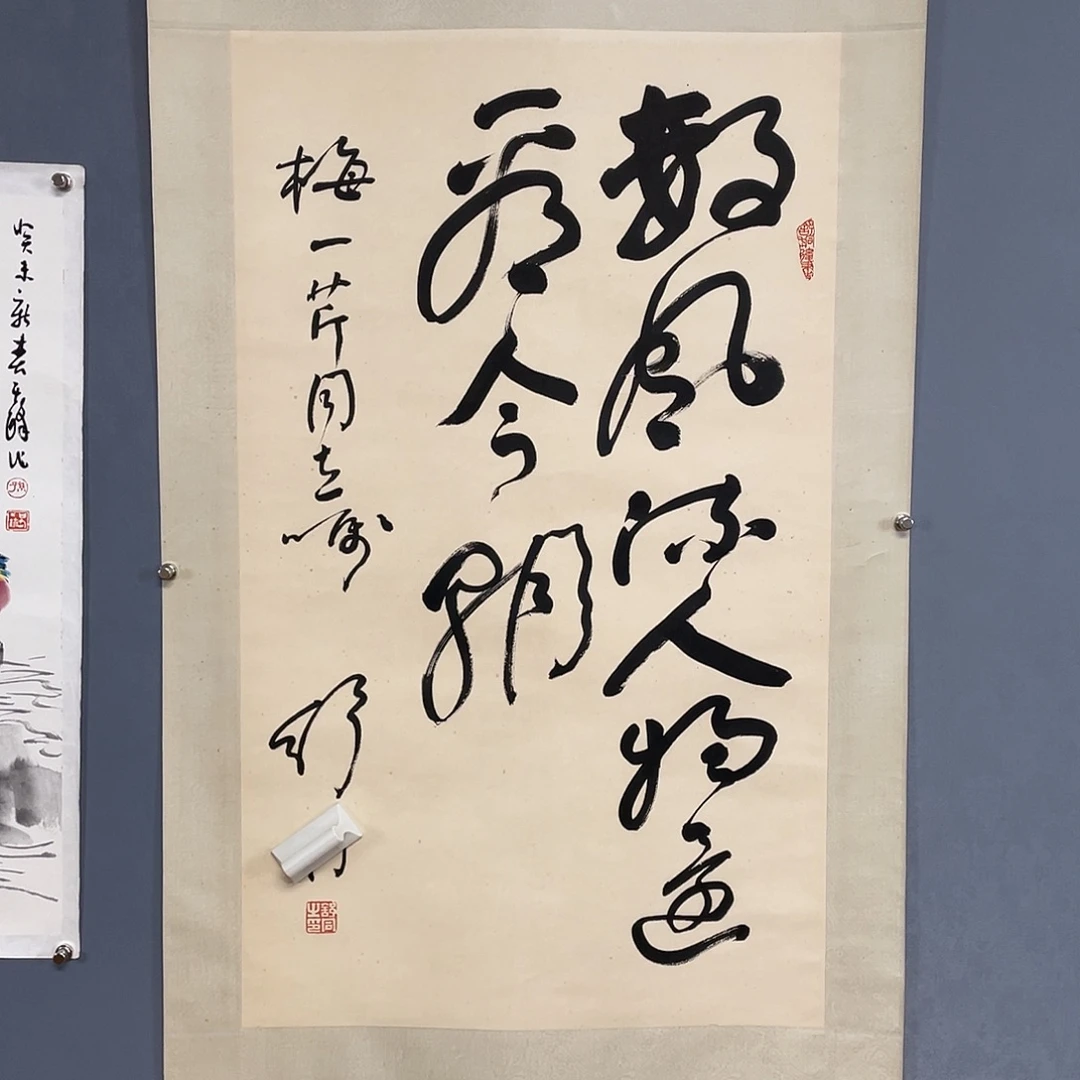 数风流人物还
看今朝
梅一芹同志嘱
舒
舒同之印
癸未新春